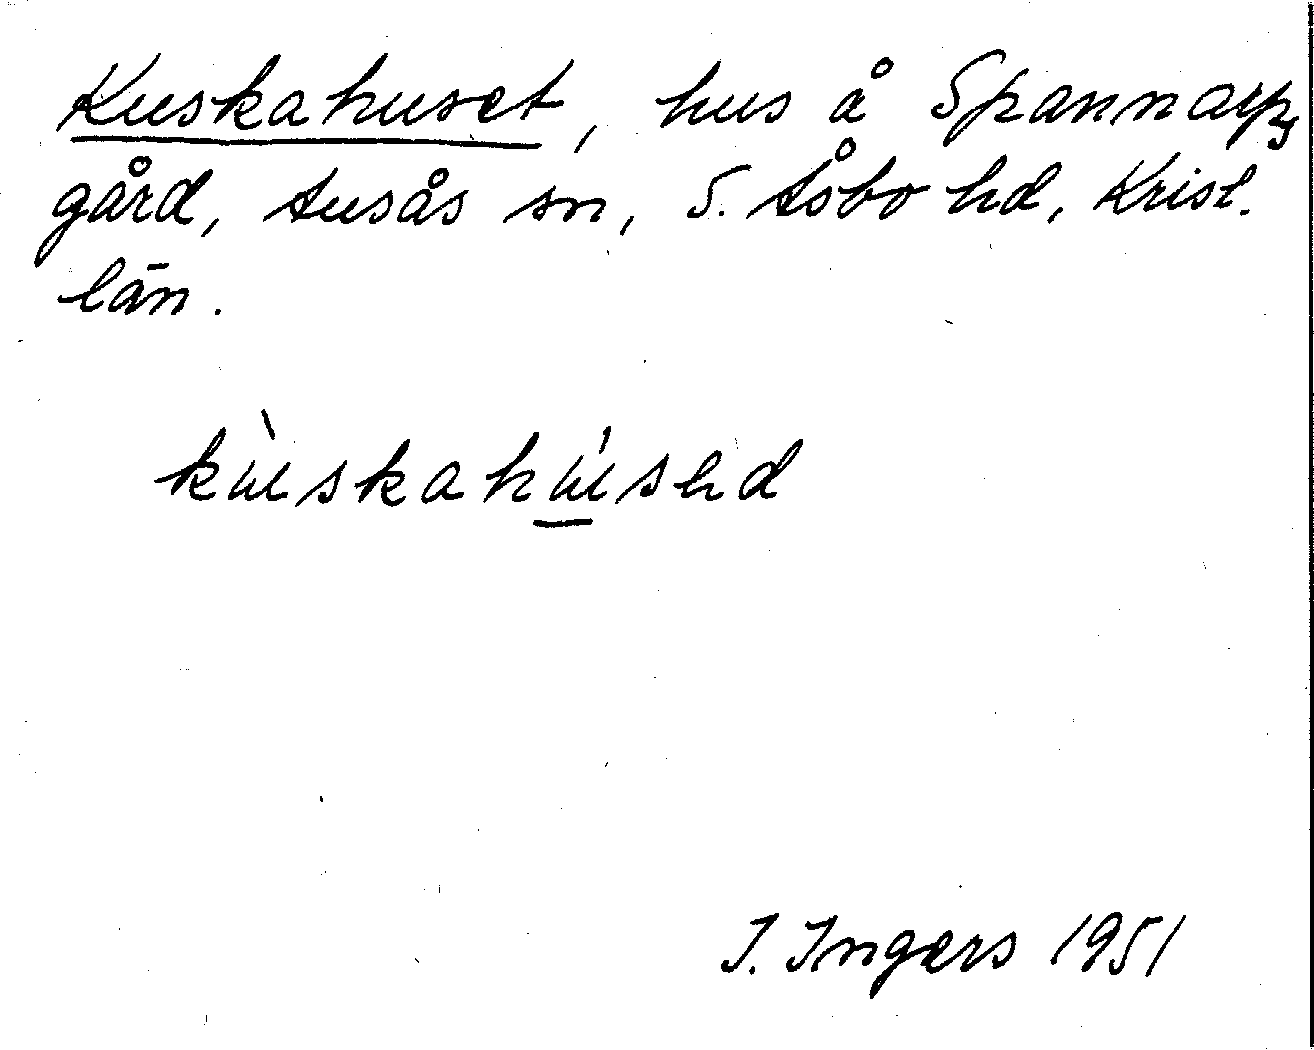 Kuskahuset, hus å Spannarps
gård, Ausås sn, S. Åsbo hd, Krist.
län.
kùskahúsəd
I. Ingers 1951